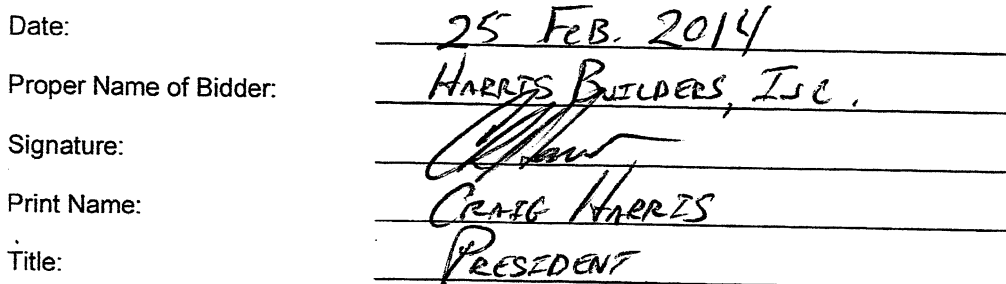 Date: 25 FEB. 2014
Proper Name of Bidder: HARRIS BUILDERS, INC.
Signature:
Print Name: CRAIG HARRIS
Title: PRESIDENT